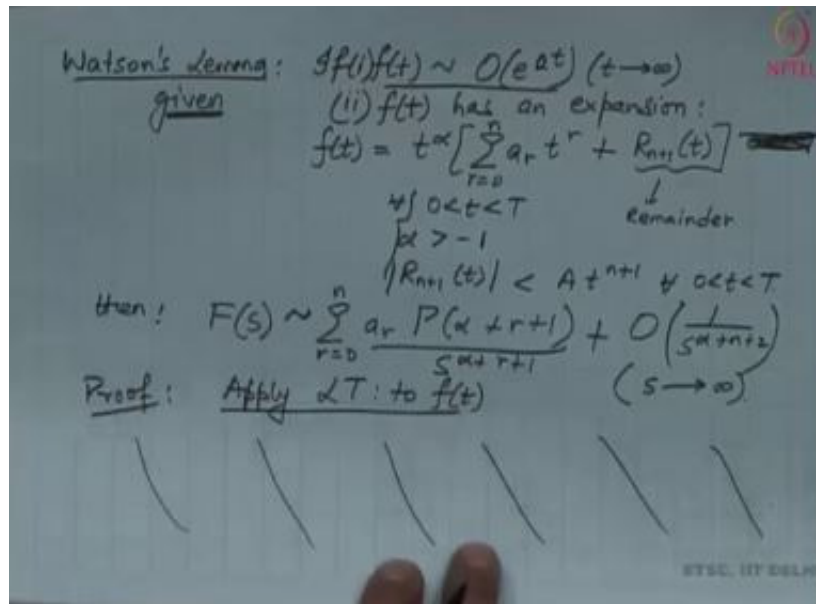 Watson's Lemma: If (i) f(t) ~ O(e^{at}) (t→∞)
given (ii) f(t) has an expansion:
f(t) = t^α [ Σ_{r=0}^{n} a_r t^r + R_{n+1}(t) ]
∀ 0<t<T Remainder
α > -1
|R_{n+1}(t)| < A t^{n+1} ∀ 0<t<T
then: F(s) ~ Σ_{r=0}^{n} a_r Γ(α+r+1) / s^{α+r+1} + O(1/s^{α+n+2})
(s→∞)
Proof: Apply LT: to f(t)
NPTEL
ETSC, IIT DELHI